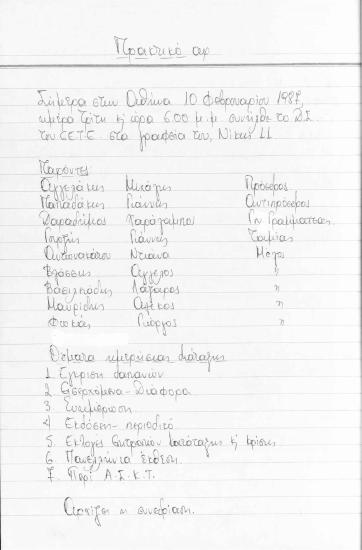 Πρακτικό αρ
Σήμερα στην Αθήνα 10 Φεβρουαρίου 1987,
ημέρα Τρίτη κι ώρα 6.00 μ.μ. συνήλθε το Δ.Σ.
του CETE στα γραφεία του, Νίκης 11
Παρόντες
Αγγελάκης Μιχάλης Πρόεδρος
Παπαδάκης Γιάννης Αντιπρόεδρος
Δαραδήμος Χαράλαμπος Γεν Γραμματέας
Γιάννης Ταμίας
Ντιάνα Μέλος
Βλάσσης Άγγελος "
Βασιλειάδης Λάζαρος "
Μαυρίδης Αλέκος "
Φωκάς Γιώργος "
Θέματα ημερήσιας διάταξης
1 Έγκριση δαπανών
2 Εισερχόμενα - Διάφορα
3. Ενημέρωση
4 Εκδόσεις - περιοδικό
5. Εκλογές επιτροπών κατάταξης κι κρίσης
6. Πανελλήνια έκθεση
7. Περί Α.Σ.Κ.Τ.
Αρχίζει η συνεδρίαση.